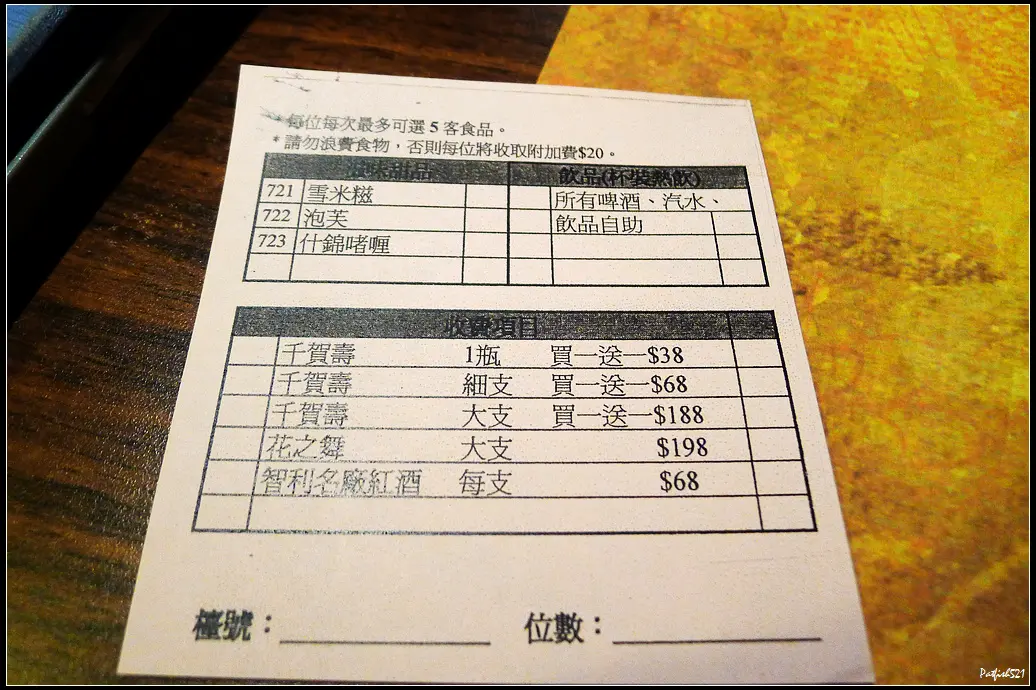 * 每位每次最多可選 5 客食品。
* 請勿浪費食物，否則每位將收取附加費$20。
美味甜品 飲品(杯裝熱飲)
721 雪米糍 所有啤酒、汽水、
722 泡芙 飲品自助
723 什錦啫喱
收費項目
千賀壽 1瓶 買一送一$38
千賀壽 細支 買一送一$68
千賀壽 大支 買一送一$188
花之舞 大支 $198
智利名廠紅酒 每支 $68
檯號： 位數：
Patfish521